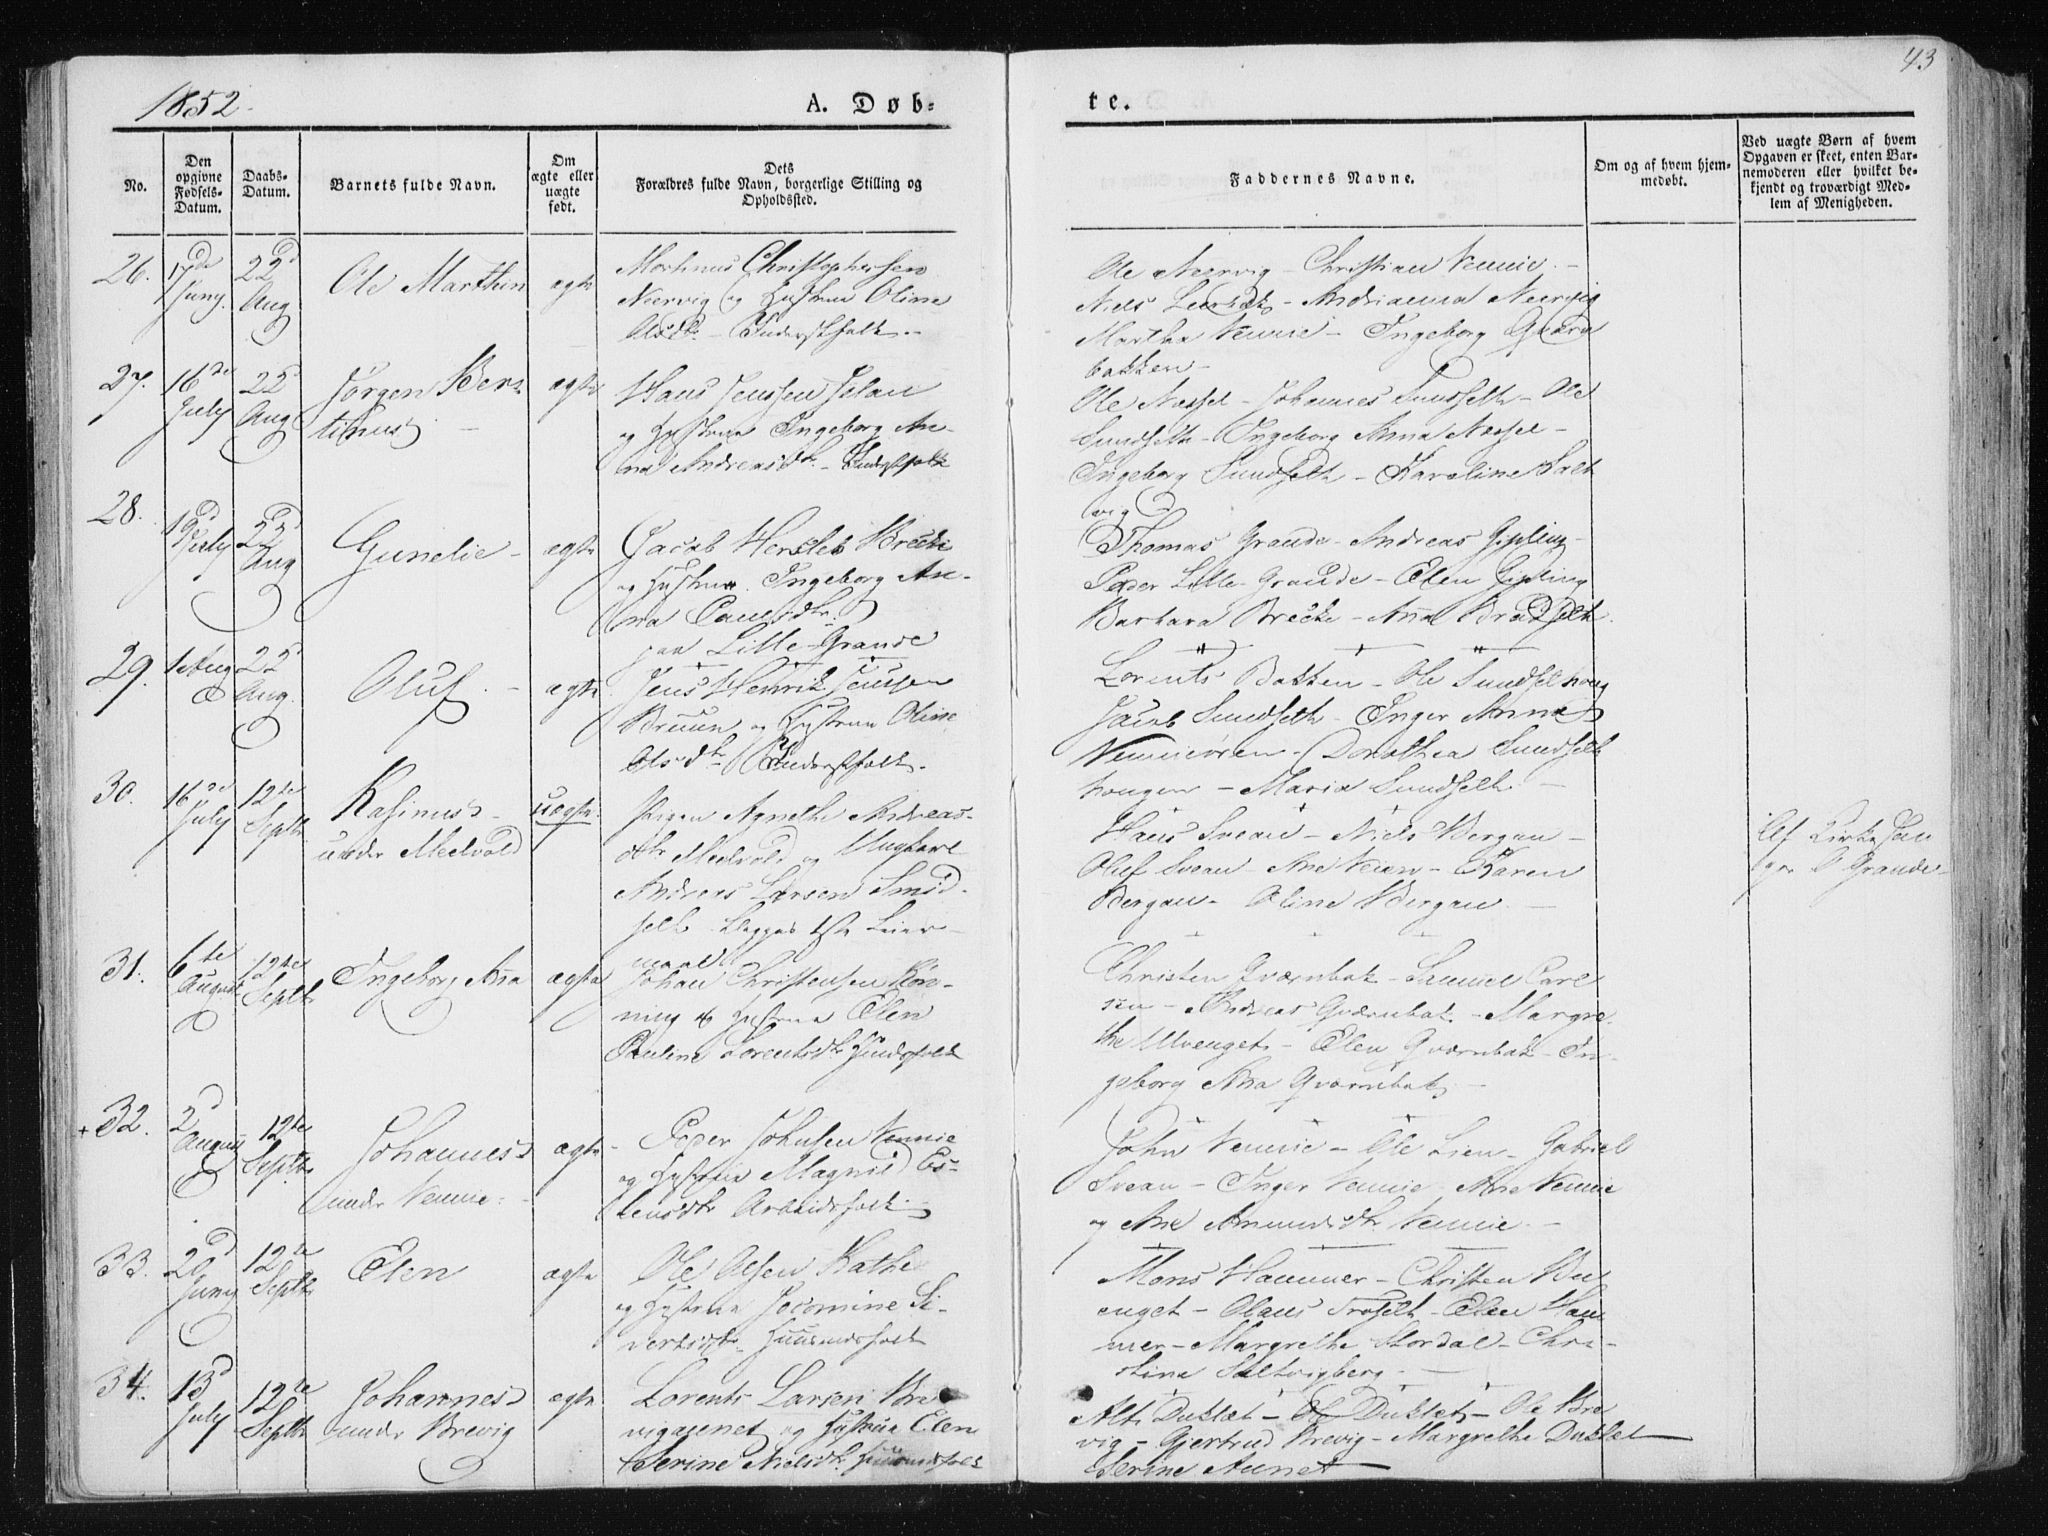 1852.
A. Døb-
te.
43
No.
Den
opgivne
Fødsels-
Datum.
Daabs-
Datum.
Barnets fulde Navn.
Om
ægte eller
uægte
født.
Dets
Forældres fulde Navn, borgerlige Stilling og
Opholdssted.
Faddernes Navne.
Om og af hvem hjem-
medøbt.
Ved uægte Børn af hvem
Opgaven er skeet, enten Bar-
nemoderen eller hvilket be-
kjendt og troværdigt Med-
lem af Menigheden.
26.
17de
Juny.
22d
Aug
Ole Marthin
ægte
Morhnus Christophersen
Neervig og Hustrue Olina
Olsdtr. - Inderstfolk.
Ole Neervig - Christian Vennie. -
Niels - Andrianna Neervig
Martha Vennie - Ingeborg Qværn
bakken -
27.
16de
July
22
Aug
Jörgen Ber-
tinus -
ægte
Hans Jenssen
og Hustrue Ingeborg An-
na Andreasdtr. - Inderstfolk
Ole Nessel - Johannes Sundseth - Ole
Sundseth - Ingeborg Anna Nessel -
Ingeborg Sundseth - Karoline Salt
vig
28.
1d
July
22
Aug
Gunelie -
ægte
Jacob Hersleb Brecke
og Hustrue Ingeborg An-
na Paulsdtr.
paa Lille-Grande
Thomas Grande - Andreas Gipling -
Peder Lille-Grande - Elen Gipling
Barbara Brecke - Aña Bradseth.
29.
1 Aug
22
Aug.
Oluf. -
ægte
Jens Henrik Jenssen
Bruun og Hustrue Oline
Olsdtr. Inderstfolk.
Lorents Bakken - Ole Sundsethoug
Jacob Sundseth - Inger Anna
Vennieören - Dorothea Sundseth
hougen - Maria Sundseth -
30.
16de
July
12te
Septbr.
Rasinus -
under Medvold
uægte.
Pigen Agnethe Andreas-
dtr Medvold og Ungkarl
Andreas Larsen
Begges 1ste Leier-
maal
Hans Sveau - Niels Bergan -
Oluf Sveau - Ane - Karen
Bergan - Oline Bergan -
Af Kirkesan
ger Grande -
31.
6te
August
12te
Septbr
Ingeborg Aña
ægte
Johan Christensen Rön-
ning og Hustrue Elen
Pauline Lorentsdtr Huusfolk
Christen Qværnbak - Samuel Carl
sen - Andreas Qværnbak. - Margre
the Ulvenget - Elen Qværnbak - In-
geborg Aña Qværnbak -
+32.
2d
August
12te
Septbr.
Johannes
under Vennie. -
ægte -
Peder Johnsen Vennie
og Hustrue Magnild Es-
tensdtr Arbeidsfolk
John Vennie - Ole Lien - Gabriel
Sveau - Inger Vennie. Ane Vennie
og Ane Amundsdtr. Vennie. -
33.
20d
Juny
12te
Septbr
Elen
ægte
Ole Olsen Rathe
og Hustrue Jocomine Si-
vertsdtr. Huusmandsfolk
Mons Hammer - Christen Bu
enget - Olaus Troseth - Elen Ham
mer - Margrethe Stordal - Chri-
stina Saltvigberg -
34.
13d
July
12te
Septbr
Johannes
under Brevig
ægte
Lorents Larsen Bre
vigaunet og Hustrue Elen
Serine Nielsdtr. Huusmandsfolk
Alt Duklæt - Duklæt - Ole Bre
vig - Gjertrud Brevig - Margrethe Duklet
Serine Aunet